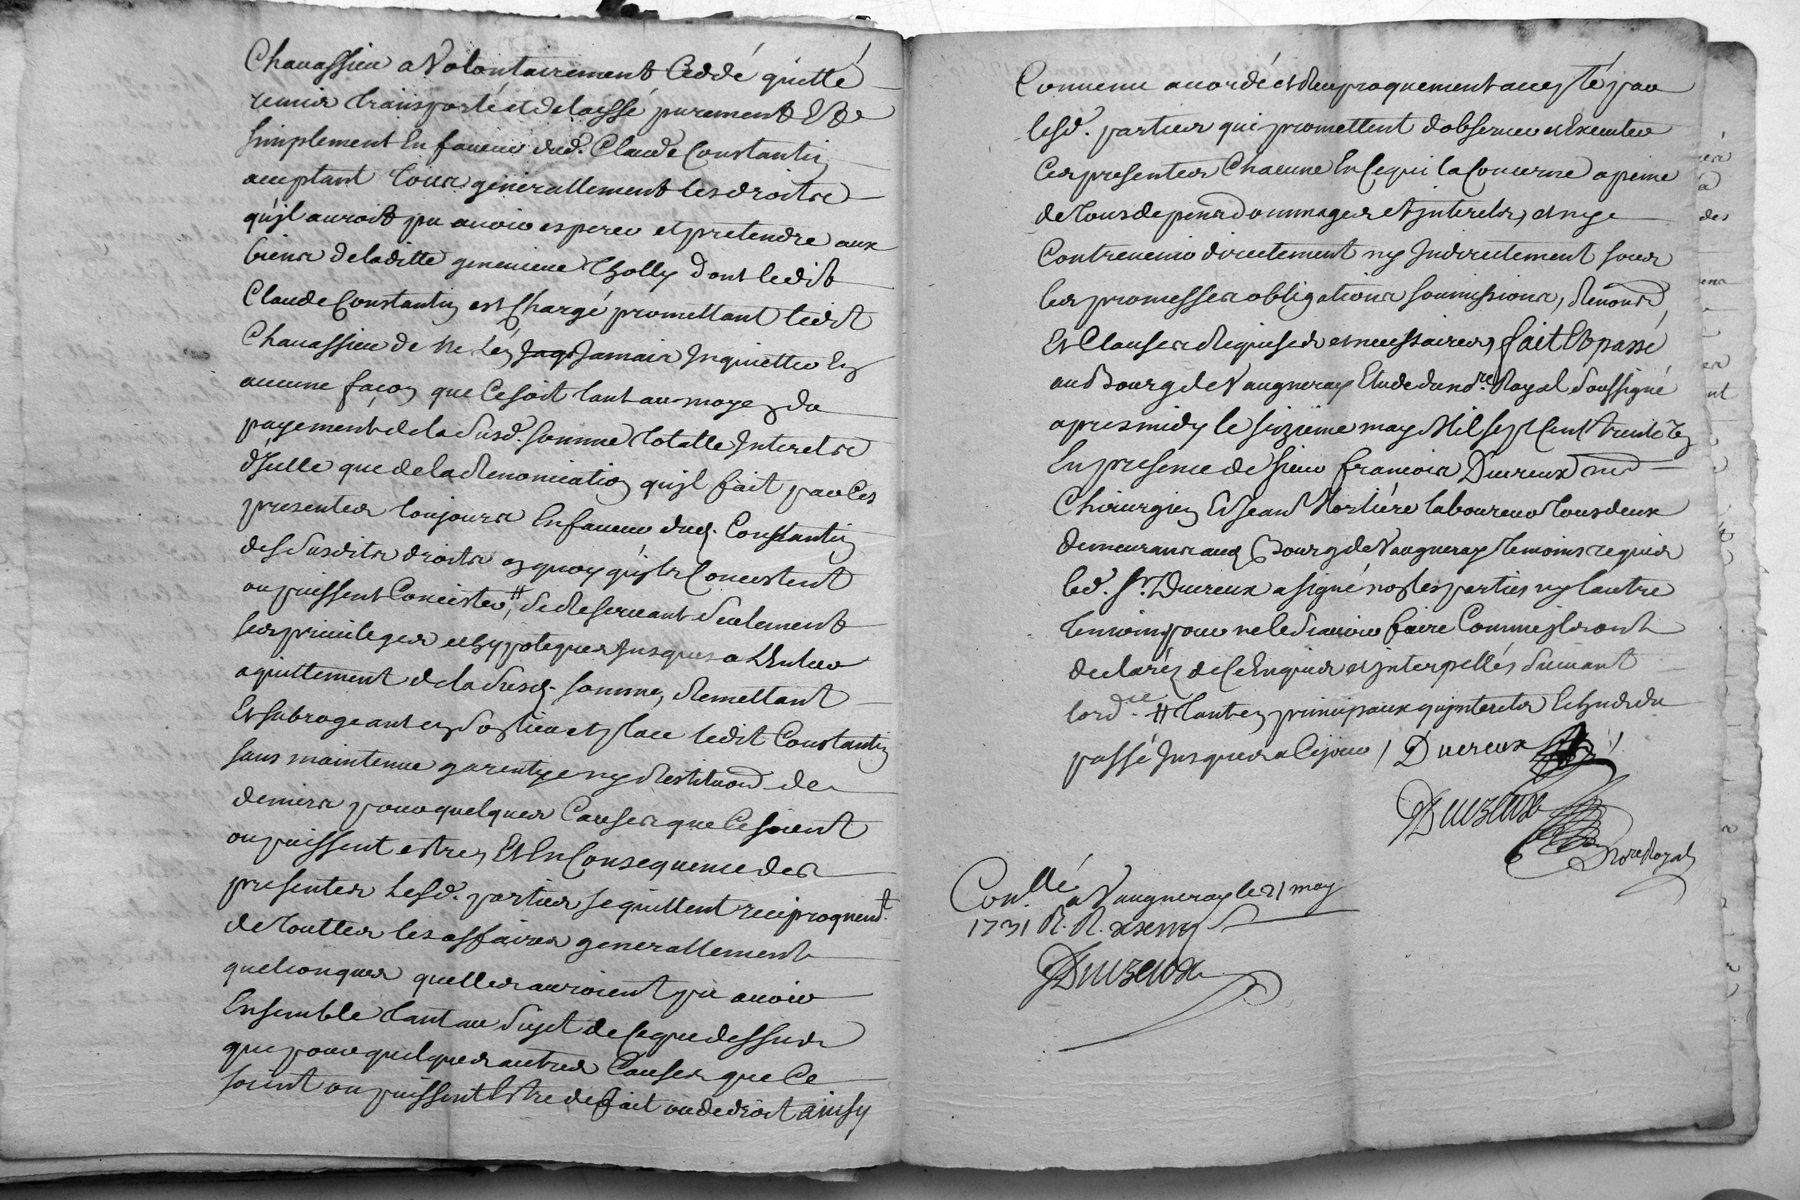 Chavassieu a Volontairement Ceddé quitté
remis transporté et delaissé purement Et
simplement En faveur dud. Claude Constantin
acceptant tous generallement les droits
qu'jl auroit pu avoir esperer et pretendre aux
biens de laditte genevieve tholly dont ledit
Claude Constantin est Chargé promettant ledit
Chavassieu de ne l'en Jamais Jnquietter En
aucune façon que Ce soit tant au moyen du
payement de la Susd. somme totalle Jnterets
d'Jcelle que de la Renonciation qu'jl fait par Ces
presentes toujours En faveur dud. Constantin
desSusdits droits en quoy qu'jls Concistent
ou puissent Concister, # Se Reservant Seulement
ses privileges et hypoteques Jusques a L'Entier
aquittement de la Susd. somme, Remettant
Et subrogeant en son lieu et place ledit Constantin
sans maintenue garentye ny Restitu[on] de
deniers pour quelques Causes que Ce soient
ou puissent estre, Et En Consequence des
presentes Lesd. parties se quittent reciproquem.t
de touttes les affaires generallement
quelconques quelles auroient pu avoir
Ensemble tant au Sujet de Ce que dessus
que pour quelques autres Causes que Ce
soint ou puissent Estre de fait ou de droit ainsy
Convenu accordé et Reciproquement accepté par
lesd. parties qui promettent d'observer et Executer
Ces presentes Chacune En Ce qui la Concerne a peine
de tous depens dommages et jnterets, et n'y
Contrevenir directement ny Indirectement sous
les promesses obligations soumissions, Renon[ons]
Et Clauses Requises et necessaires, fait Et passé
au Bourg de Vaugneray Etude du no.re Royal Soussigné
apres midy le seizieme may Mil sept Cent trente Un
En presence de sieur francois Ducreux m.e
Chirurgien Et Jean Mortiére laboureur tous deux
demeurans aud. Bourg de Vaugneray temoins requis
led. Sr. Ducreux a signé non les parties ny l'autre
temoin pour ne le Scavoir faire Comme jls ont
declaréz de Ce Enquis et jnterpellés Suivant
l'ord.ce # tant en principaux qu'jnterets Echus du
passé Jusques a Ce jour / Ducreux
Duzeux
No.re Royal
Con.llé a Vaugneray le 21 may
1731 R.
Duzeux